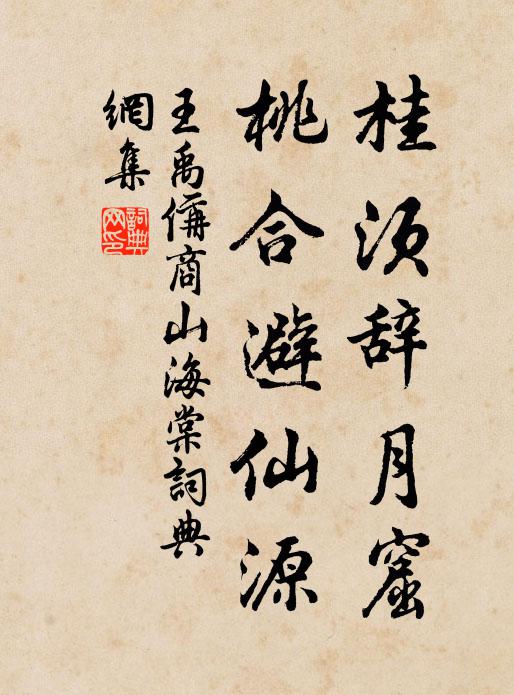 桂须辞月窟
桃合避仙源
王禹偁商山海棠詞典
網集
詞典网印